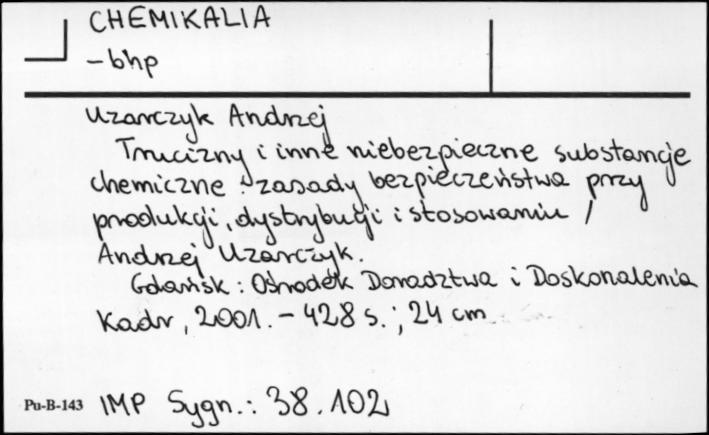 CHEMIKALIA
-bhp
Uzarczyk Andrzej
Trucizny i inne niebezpieczne substancje
chemiczne : zasady bezpieczeństwa przy
produkcji, dystrybucji i stosowaniu /
Andrzej Uzarczyk.
Gdańsk : Ośrodek Doradztwa i Doskonalenia
Kadr, 2001. - 428 s. ; 24 cm
Pu-B-143 IMP Sygn. : 38.102